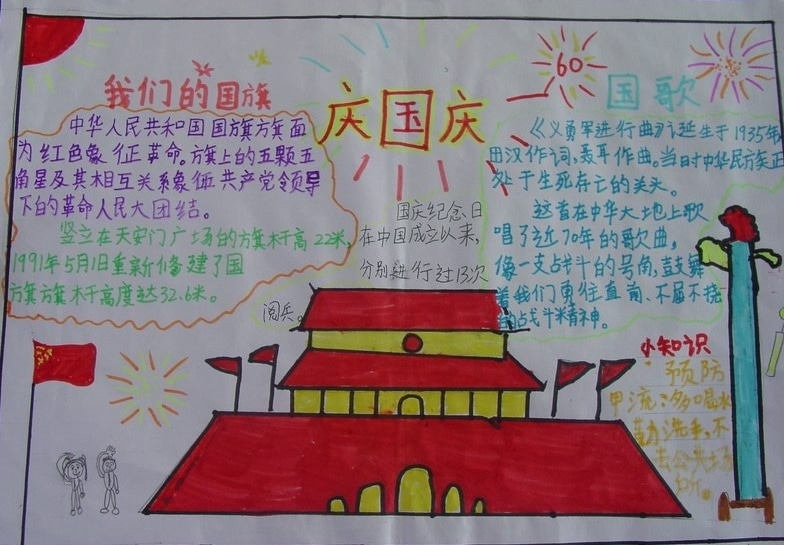 我们的国旗
中华人民共和国国旗旗面
为红色象征革命。旗上的五颗五
角星及其相互关系象征共产党领导
下的革命人民大团结。
竖立在天安门广场的旗杆高22米，
1991年5月1日重新修建了国
旗旗杆高度达32.6米。
庆国庆
国庆纪念日
在中国成立以来，
分别进行过13次
阅兵。
60
国歌
《义勇军进行曲》诞生于1935年
田汉作词，聂耳作曲。当时中华民族正
处于生死存亡的关头。
这首在中华大地上歌
唱了近70年的歌曲，
像一支战斗的号角，鼓舞
着我们勇往直前、不屈不挠
的战斗精神。
小知识
预防
甲流：多喝水
勤洗手，不
去公共场